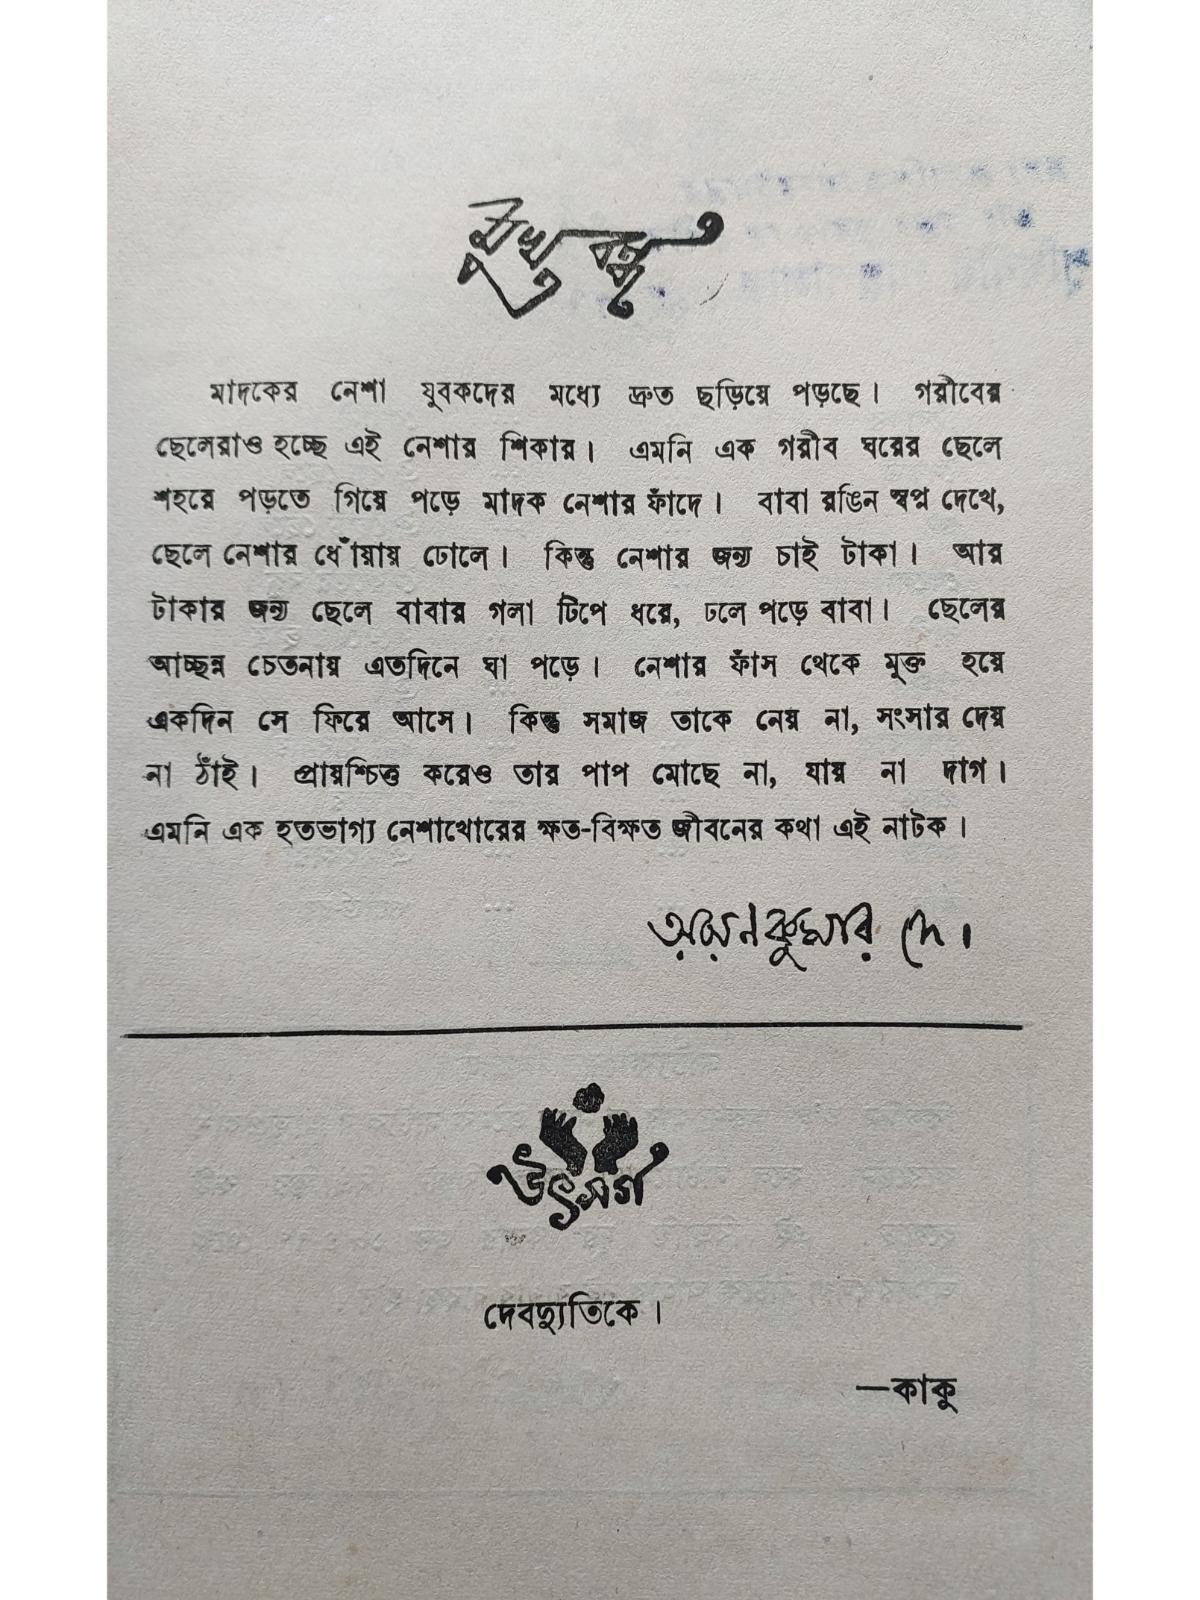 মুখবন্ধ
মাদকের নেশা যুবকদের মধ্যে দ্রুত ছড়িয়ে পড়ছে। গরীবের
ছেলেরাও হচ্ছে এই নেশার শিকার। এমনি এক গরীব ঘরের ছেলে
শহরে পড়তে গিয়ে পড়ে মাদক নেশার ফাঁদে। বাবা রঙিন স্বপ্ন দেখে,
ছেলে নেশার ধোঁয়ায় ঢোলে। কিন্তু নেশার জন্য চাই টাকা। আর
টাকার জন্য ছেলে বাবার গলা টিপে ধরে, ঢলে পড়ে বাবা। ছেলের
আচ্ছন্ন চেতনায় এতদিনে ঘা পড়ে। নেশার ফাঁস থেকে মুক্ত হয়ে
একদিন সে ফিরে আসে। কিন্তু সমাজ তাকে নেয় না, সংসার দেয়
না ঠাঁই। প্রায়শ্চিত্ত করেও তার পাপ মোছে না, যায় না দাগ।
এমনি এক হতভাগ্য নেশাখোরের ক্ষত-বিক্ষত জীবনের কথা এই নাটক।
কুমার দে।
উৎসর্গ
দেবদ্যুতিকে।
—কাকু